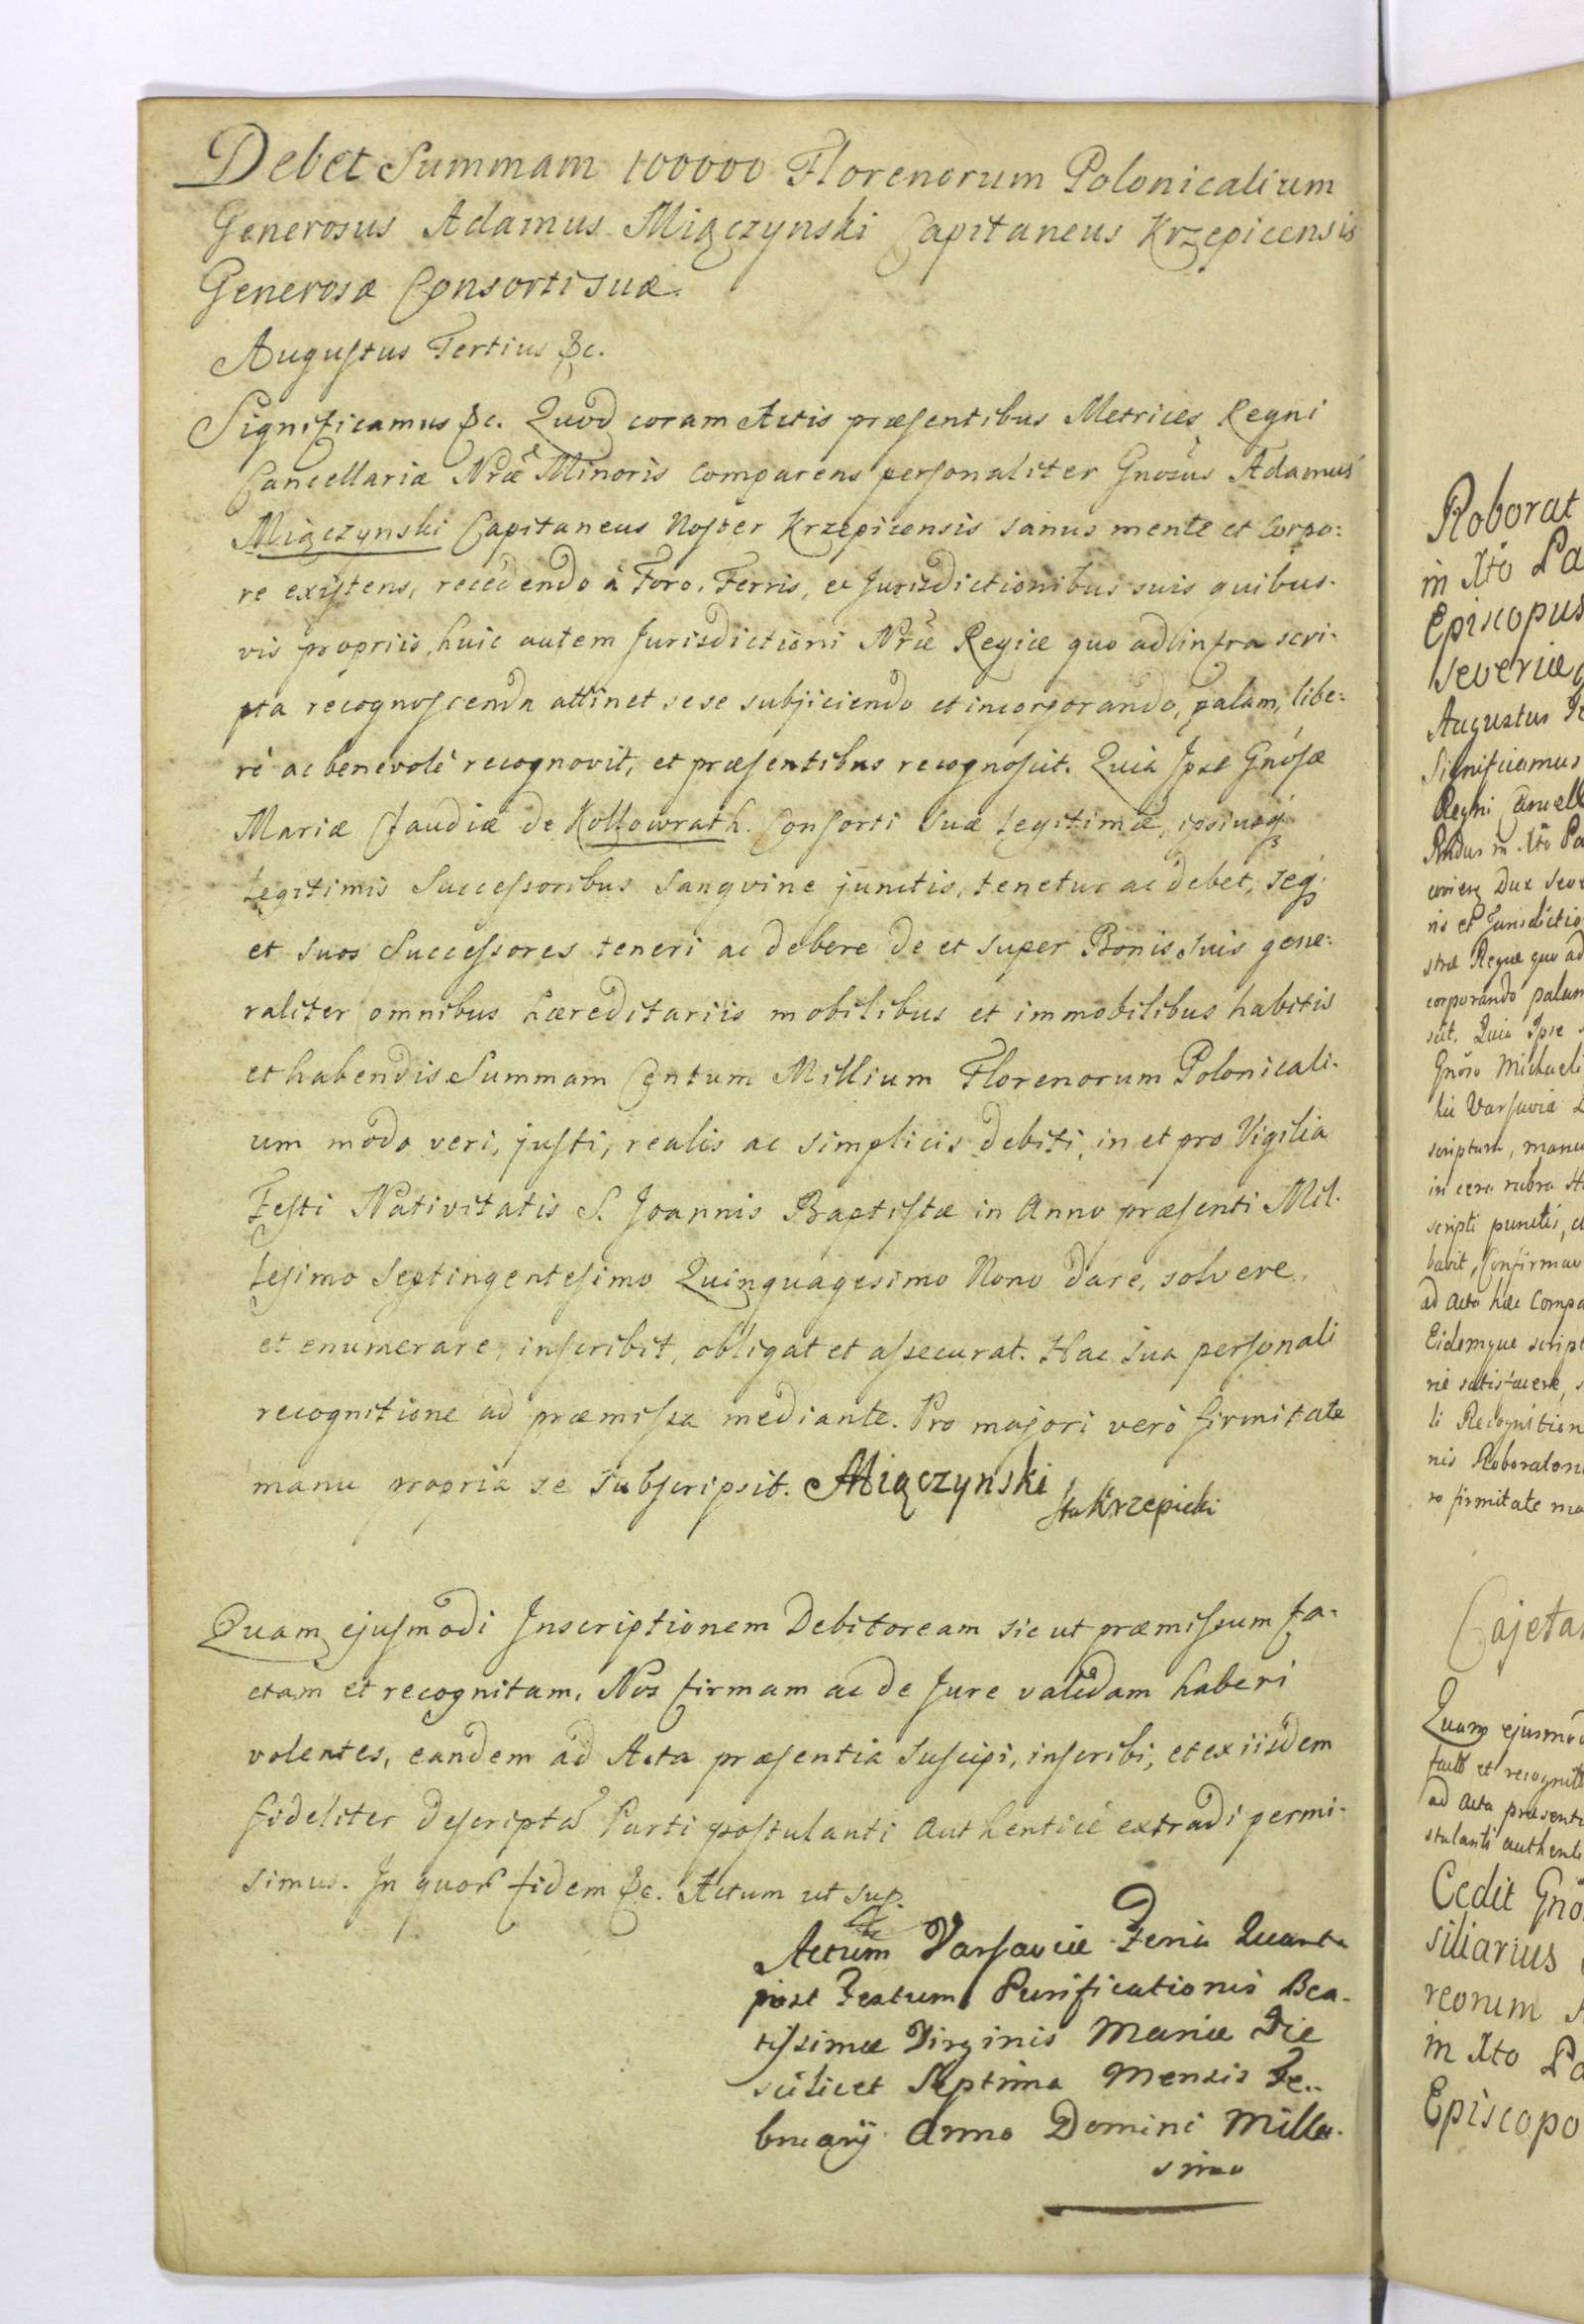 Debet Summam 100000 Florenorum Polonicalium
Generosus Adamus Miączynski Capitaneus Krzepicensis
Generosæ Consorti suæ.
Augustus Tertius &c.
Significamus &c. Quod coram Actis præsentibus Metrices Regni
Cancellariæ Nræ Minoris comparens personaliter Gnosus Adamus
Miączynski Capitaneus Noster Krzepicensis sanus mente et Corpo:
re existens, recedendo à Foro, Terris, et Jurisdictionibus suis quibus-
vis propriis, huic autem Jurisdictioni Nræ Regiæ quo ad infra scri-
pta recognoscenda attinet sese subjiciendo et incorporando, palam, libe:
rè ac benevolè recognovit, et præsentibus recognoscit. Quia Ipse Gnosæ
Mariæ Claudiæ de Kollowrath. Consorti suæ Legitimæ, ipsiusq;
Legitimis Successoribus Sangvine junctis, tenetur ac debet, seq;
et suos Successores teneri ac debere de et super Bonis suis gene:
raliter omnibus hæreditariis mobilibus et immobilibus habitis
et habendis Summam Centum Millium Florenorum Polonicali-
um modo veri, justi, realis ac simplicis debiti, in et pro Vigilia
Festi Nativitatis S. Joannis Baptistæ in Anno præsenti Mil-
lesimo Septingentesimo Quinquagesimo Nono dare, solvere
et enumerare, inscribit, obligat et assecurat. Hac sua personali
recognitione ad præmissa mediante. Pro majori verò firmitate
manu propria se subscripsit. AMiączynski
Sta Krzepicki
Quam ejusmodi Inscriptionem Debitoream sic ut præmissum fa-
ctam et recognitam, Nos firmam ac de Jure validam haberi
volentes, eandem ad Acta præsentia suscipi, inscribi, et ex iisdem
fideliter descriptã Parti postulanti authenticè extradi permi-
simus. In quor fidem &c. Actum ut sup.
Actum Varsaviæ Feria Quarta
post Festum Purificationis Bea-
tissimæ Virginis Mariæ Die
scilicet Septima Mensis Fe-
bruarij Anno Domini Mille-
simo
Roborat
in Xto Pa
Episcopus
Severiæ
Augustus
Significamus
Regni Cancell
Rndus in Xto Pa
Dux Seve
ris et Jurisdictio
stræ Regiæ quo ad
corporando palam
scit. Quia Ipse
Gnoso Michaeli
Varsaviæ
scriptum, manu
in cera rubra
scripti punctis, et
bavit, Confirmav
ad Acta hæc Compa
Eidemque script
rie satisfacere,
li Recognition
nis Roboration
ro firmitate ma
Cajeta
Quam ejusmod
et recognit
ad Acta præsenti
stulanti authenti
Cedit Gno
siliarius
reorum
in Xto Pa
Episcopo